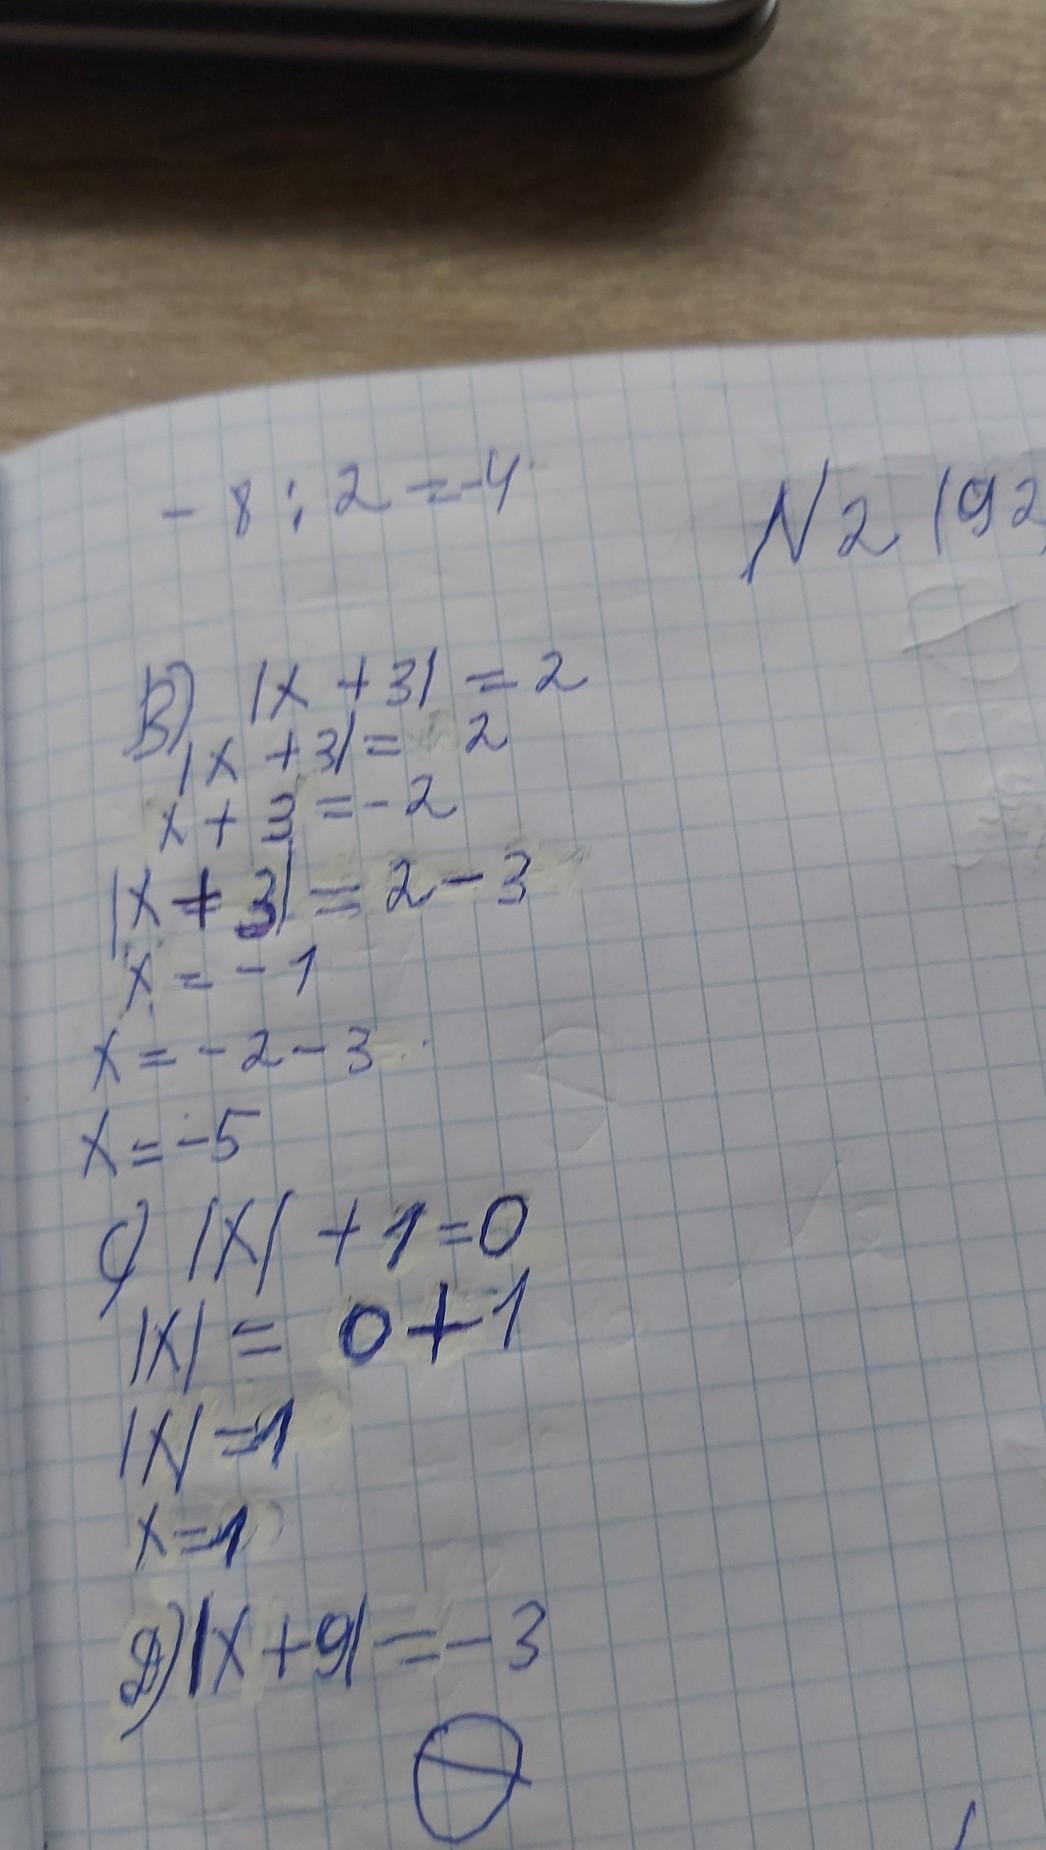 -8 : 2 = -4
N2 192
B) |x + 3| = 2
|x + 3| = 2
x + 3 = -2
|x + 3| = 2 - 3
x = -1
x = -2 - 3
x = -5
c) |x| + 1 = 0
|x| = 0 + 1
|x| = 1
x = 1
д) |x + 9| = -3
∅